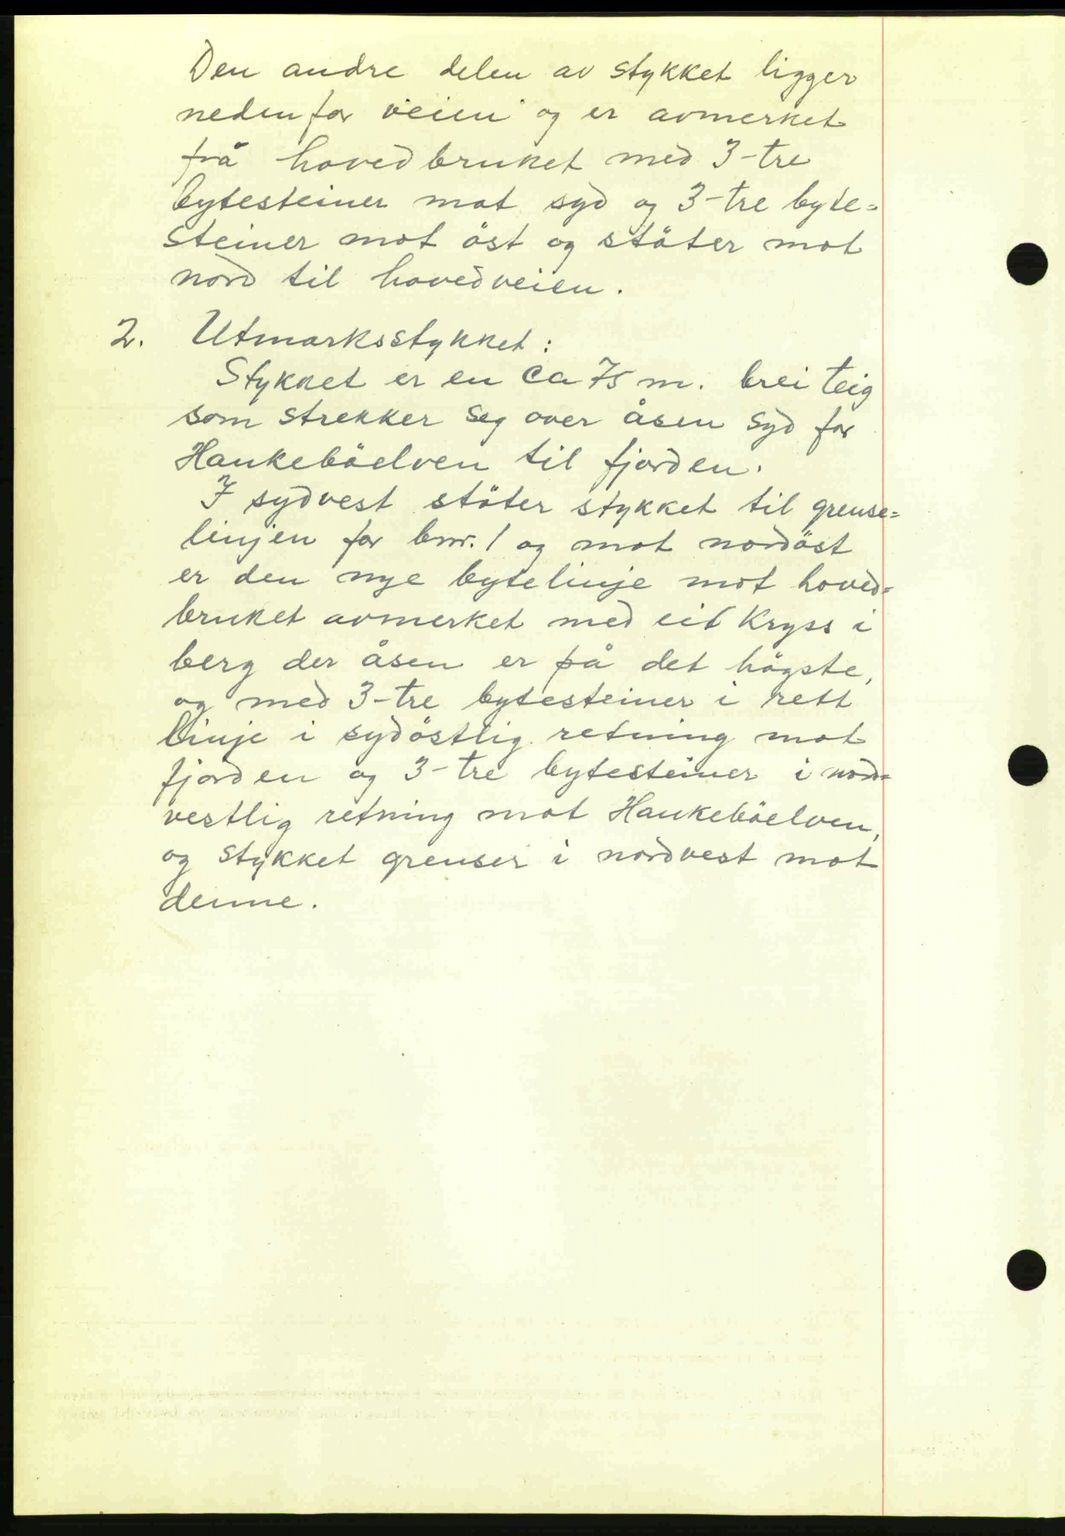 Den andre delen av stykket ligger
nedenfor veien og er avmerket
frå hovedbruket med 3-tre
bytesteiner mot syd og 3-tre byte=
steiner mot öst og stöter mot
nord til hovedveien.
2. Utmarksstykket:
Stykket er en ca 75 m. brei teig
som strekker seg over åsen syd for
Haukeböelven til fjorden.
I sydvest stöter stykket til grense=
linjen for bnr. 1 og mot nordöst
er den nye bytelinje mot hoved=
bruket avmerket med eit kryss i
berg der åsen er på det högste,
og med 3-tre bytesteiner i rett
linje i sydöstlig retning mot
fjorden og 3-tre bytesteiner i nord=
vestlig retning mot Haukeböelven,
og stykket grenser i nordvest mot
denne.